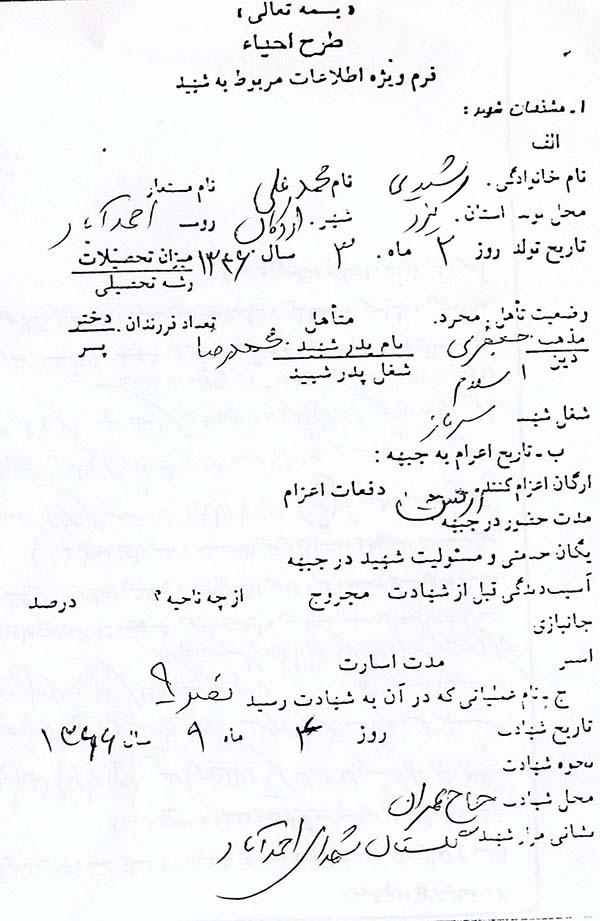 « بسمه تعالی »
طرح احیاء
فرم ویژه اطلاعات مربوط به شهید
۱ ـ مشخصات شهید :
الف
نام خانوادگی . رشیدی نام محمد علی نام مستعار
محل تولد استان . یزد شهر . اردکان روستا احمد آباد
تاریخ تولد روز ۲ ماه . ۳ سال ۱۳۴۶ میزان تحصیلات
رشته تحصیلی
وضعیت تأهل : مجرد . متأهل تعداد فرزندان . دختر
پسر
مذهب . جعفری نام پدر شهید . محمدرضا
دین اسلام شغل پدر شهید
شغل شهید سرباز
ب ـ تاریخ اعزام به جبهه :
ارگان اعزام کننده ارتش دفعات اعزام
مدت حضور در جبهه
یگان خدمتی و مسئولیت شهید در جبهه
آسیب دیدگی قبل از شهادت مجروح از چه ناحیه ؟ درصد
جانبازی
اسیر مدت اسارت
ج ـ نام عملیاتی که در آن به شهادت رسید نصر ۹
تاریخ شهادت روز ۴ ماه ۹ سال ۱۳۶۶
نحوه شهادت
محل شهادت
نشانی مزار شهید گلستان شهدای احمد آباد